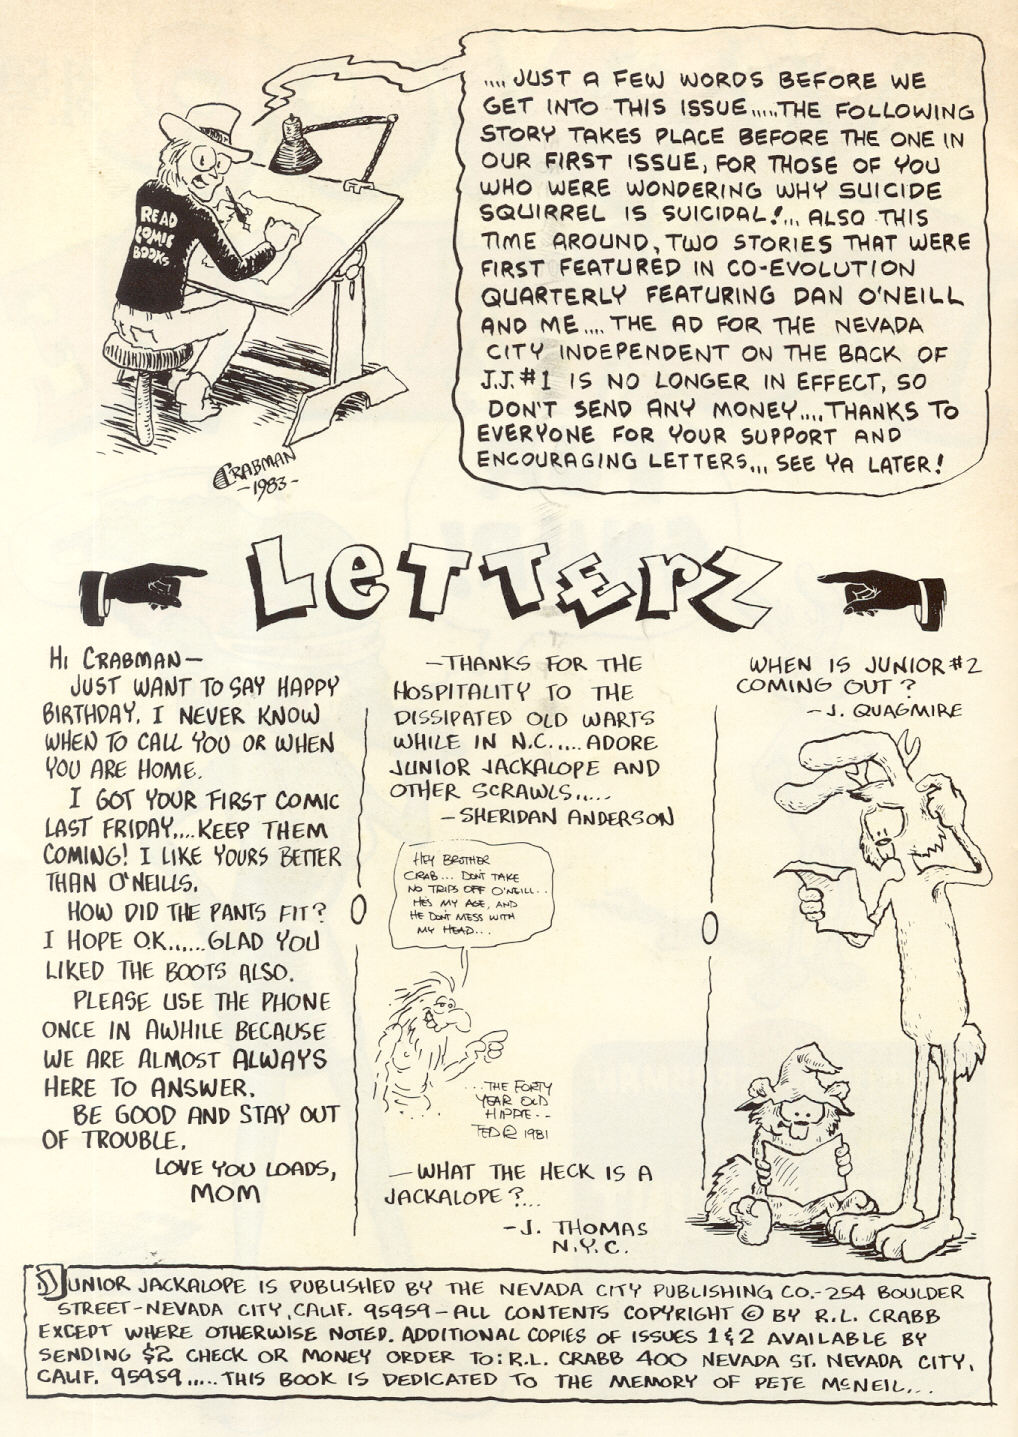 ....JUST A FEW WORDS BEFORE WE
GET INTO THIS ISSUE.....THE FOLLOWING
STORY TAKES PLACE BEFORE THE ONE IN
OUR FIRST ISSUE, FOR THOSE OF YOU
WHO WERE WONDERING WHY SUICIDE
SQUIRREL IS SUICIDAL!... ALSO THIS
TIME AROUND, TWO STORIES THAT WERE
FIRST FEATURED IN CO-EVOLUTION
QUARTERLY FEATURING DAN O'NEILL
AND ME.... THE AD FOR THE NEVADA
CITY INDEPENDENT ON THE BACK OF
J.J.#1 IS NO LONGER IN EFFECT, SO
DON'T SEND ANY MONEY....THANKS TO
EVERYONE FOR YOUR SUPPORT AND
ENCOURAGING LETTERS... SEE YA LATER!
READ
COMIC
BOOKS
CRABMAN
-1983-
LETTERZ
HI CRABMAN-
JUST WANT TO SAY HAPPY
BIRTHDAY. I NEVER KNOW
WHEN TO CALL YOU OR WHEN
YOU ARE HOME.
I GOT YOUR FIRST COMIC
LAST FRIDAY....KEEP THEM
COMING! I LIKE YOURS BETTER
THAN O'NEILLS.
HOW DID THE PANTS FIT?
I HOPE O.K......GLAD YOU
LIKED THE BOOTS ALSO.
PLEASE USE THE PHONE
ONCE IN AWHILE BECAUSE
WE ARE ALMOST ALWAYS
HERE TO ANSWER.
BE GOOD AND STAY OUT
OF TROUBLE.
LOVE YOU LOADS,
MOM
-THANKS FOR THE
HOSPITALITY TO THE
DISSIPATED OLD WARTS
WHILE IN N.C..... ADORE
JUNIOR JACKALOPE AND
OTHER SCRAWLS.....
-SHERIDAN ANDERSON
HEY BROTHER
CRAB... DON'T TAKE
NO TRIPS OFF O'NEILL..
HE'S MY AGE, AND
HE DON'T MESS WITH
MY HEAD...
...THE FORTY
YEAR OLD
HIPPIE..
TED R 1981
-WHAT THE HECK IS A
JACKALOPE?...
-J. THOMAS
N.Y.C.
WHEN IS JUNIOR #2
COMING OUT?
-J. QUAGMIRE
JUNIOR JACKALOPE IS PUBLISHED BY THE NEVADA CITY PUBLISHING CO.-254 BOULDER
STREET-NEVADA CITY, CALIF. 95959-ALL CONTENTS COPYRIGHT © BY R.L. CRABB
EXCEPT WHERE OTHERWISE NOTED. ADDITIONAL COPIES OF ISSUES 1 & 2 AVAILABLE BY
SENDING $2 CHECK OR MONEY ORDER TO: R.L. CRABB 400 NEVADA ST. NEVADA CITY,
CALIF. 95959.....THIS BOOK IS DEDICATED TO THE MEMORY OF PETE McNEIL...